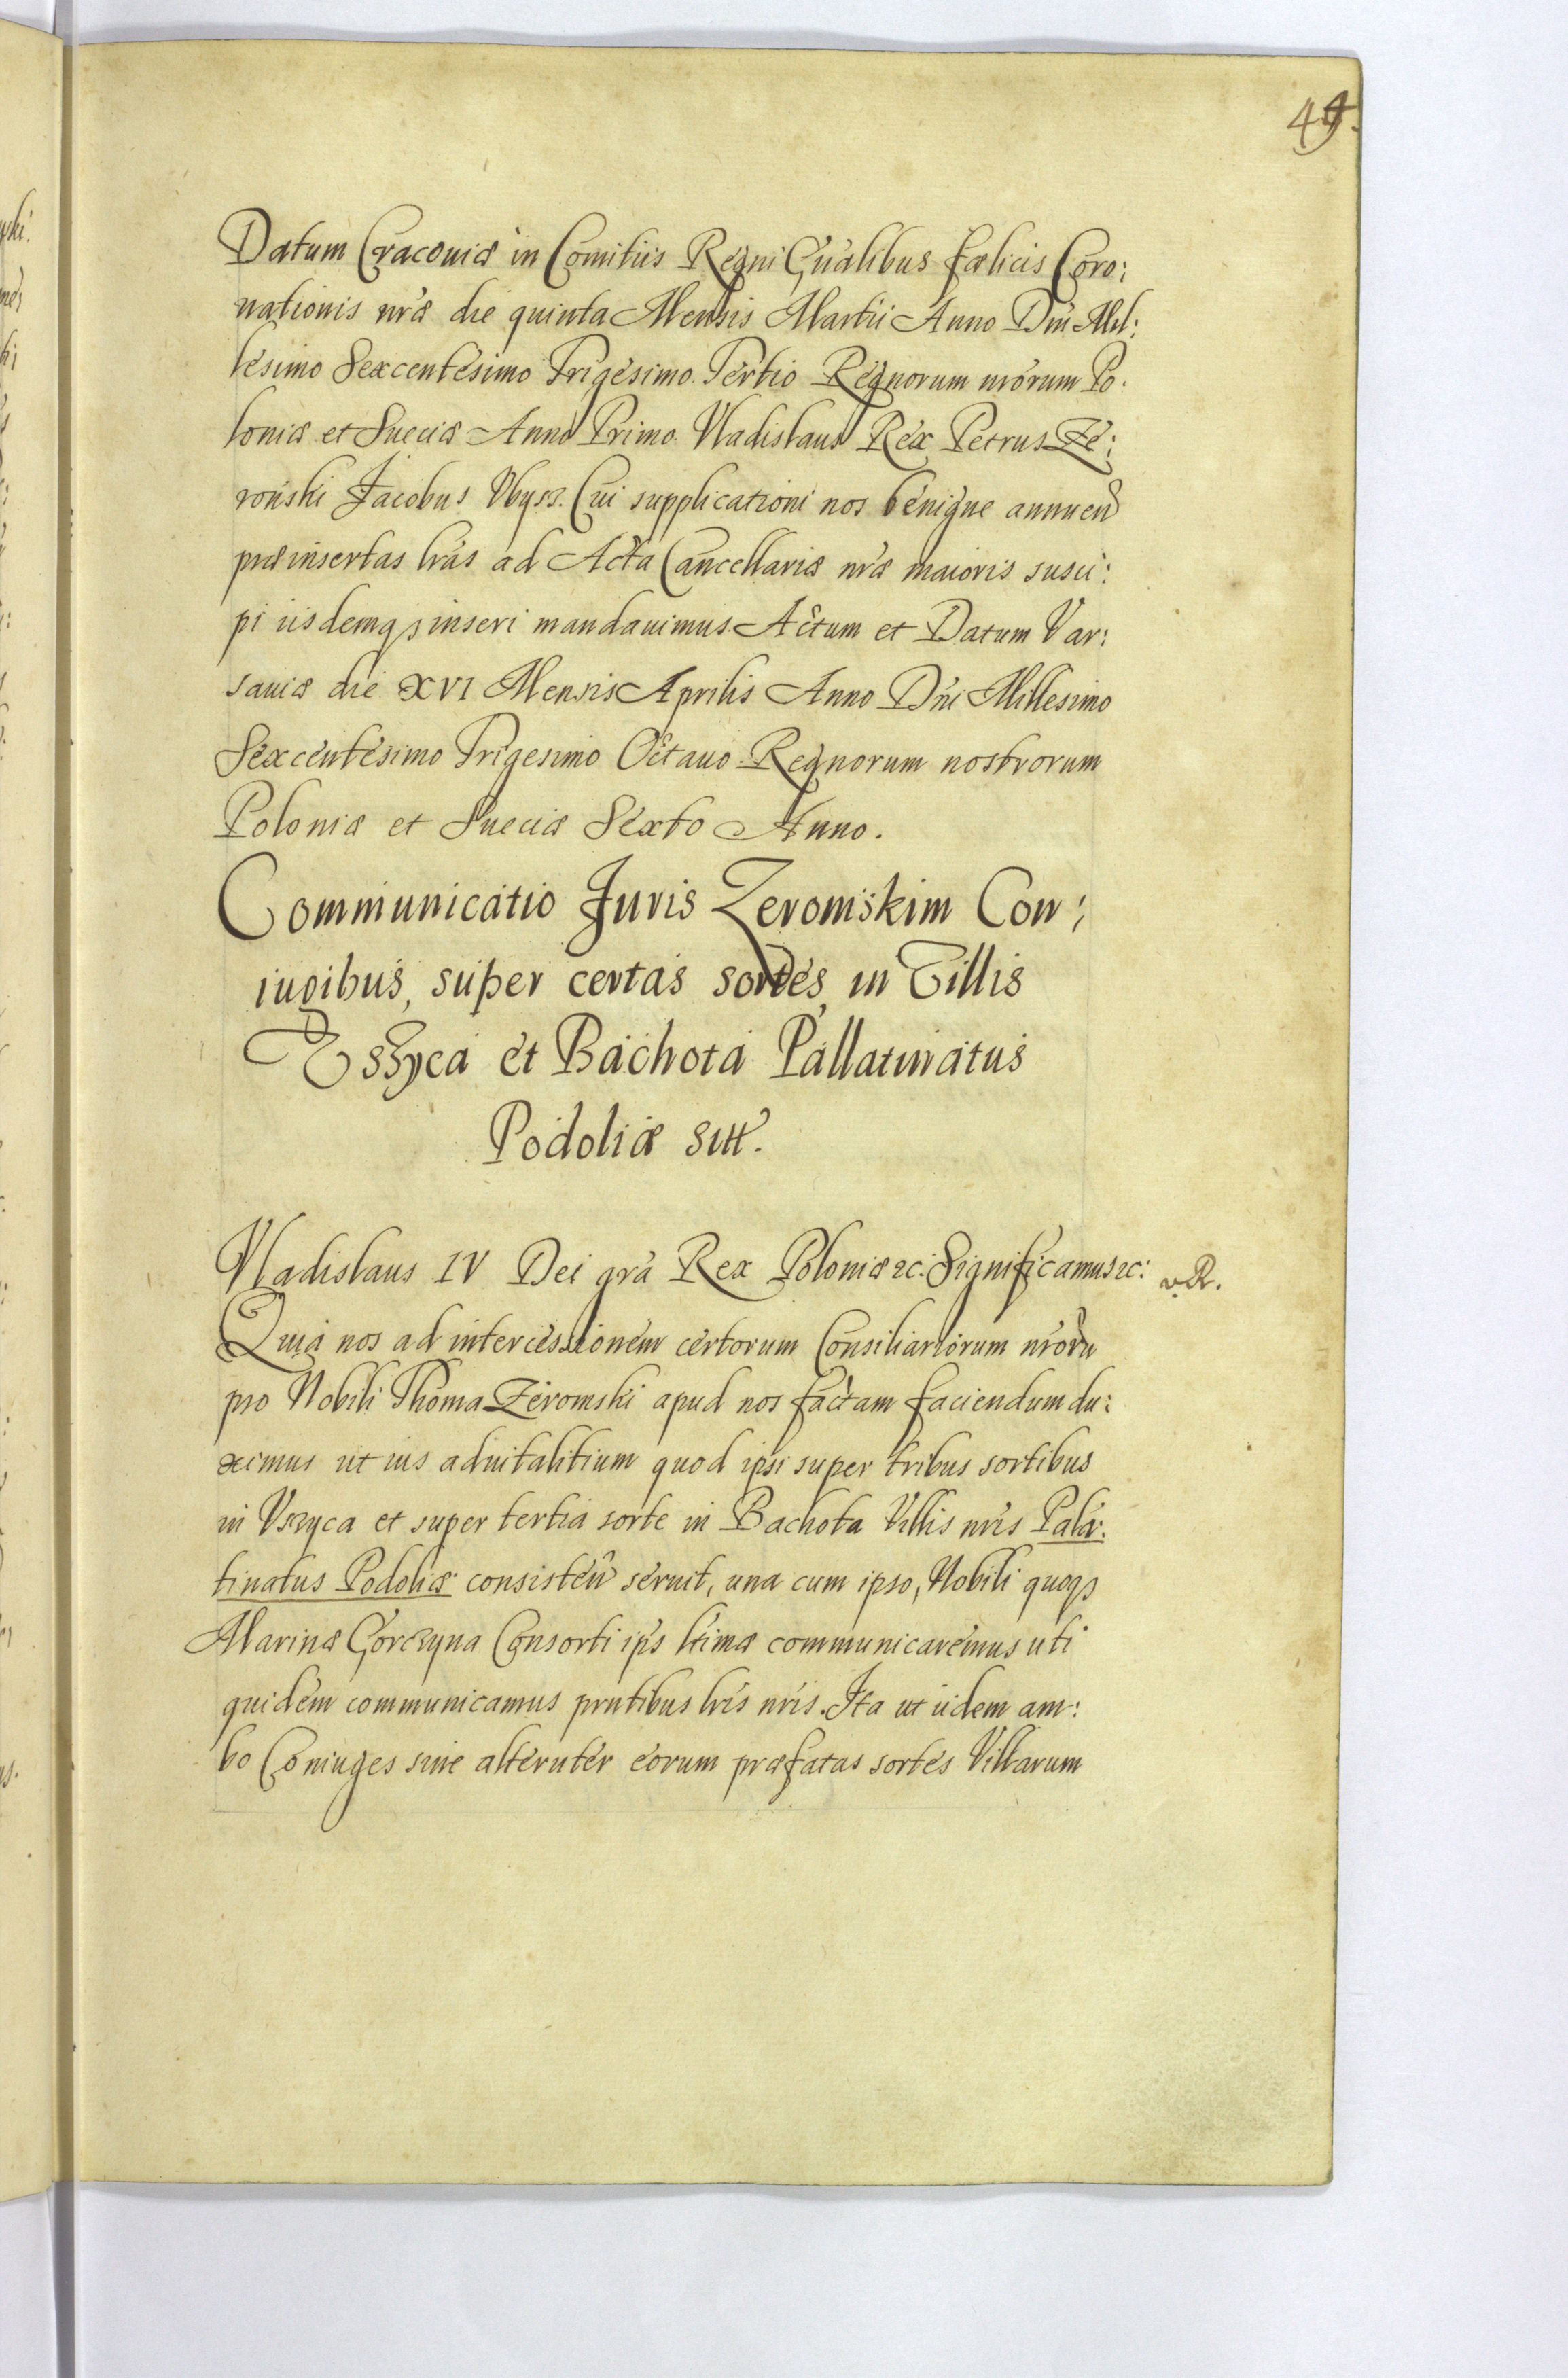 49.
Datum Cracoviæ in Comitiis Regni Gñalibus fælicis Coro:
nationis nr̃æ die quinta Mensis Martii Anno Dñi Mil:
lesimo Sexcentesimo Trigesimo Tertio Regnorum nr̃orum Po.
loniæ et Sueciæ Anno Primo Vladislaus Rex Petrus Ze:
roński Jacobus Vbysz. Cui supplicationi nos benigne annuen̄
præinsertas lr̃as ad Acta Cancellariæ nr̃æ maioris susci:
pi iisdemqȝ inseri mandauimus. Actum et Datum Var:
sauiæ die XVI Mensis Aprilis Anno Dñi Millesimo
Sexcentesimo Trigesimo Octauo. Regnorum nostrorum
Poloniæ et Sueciæ Sexto Anno.
Communicatio Juris Zeromskim Con:
iugibus, super certas sortes, in Villis
Vszyca et Bachota Pallatinatus
Podoliæ sitt.
Vladislaus IV Dei gr̃a Rex Poloniæ ꝛc. Significamus ꝛc:
v. R.
Quia nos ad intercessionem certorum Consiliariorum nr̃orū
pro Nobili Thoma Zeromski apud nos factam faciendum du:
ximus ut ius aduitalitium quod ipsi super tribus sortibus
in Vszyca et super tertia sorte in Bachota Villis nr̃is Pala:
tinatus Podoliæ consisten̄ seruit, una cum ipso, Nobili quoqȝ
Marinæ Gorczyna Consorti ip̃s ltimæ communicaremus uti
quidem communicamus pr̃ntibus lr̃is nr̃is. Ita ut iidem am:
bo Coniuges siue alteruter eorum præfatas sortes Villarum